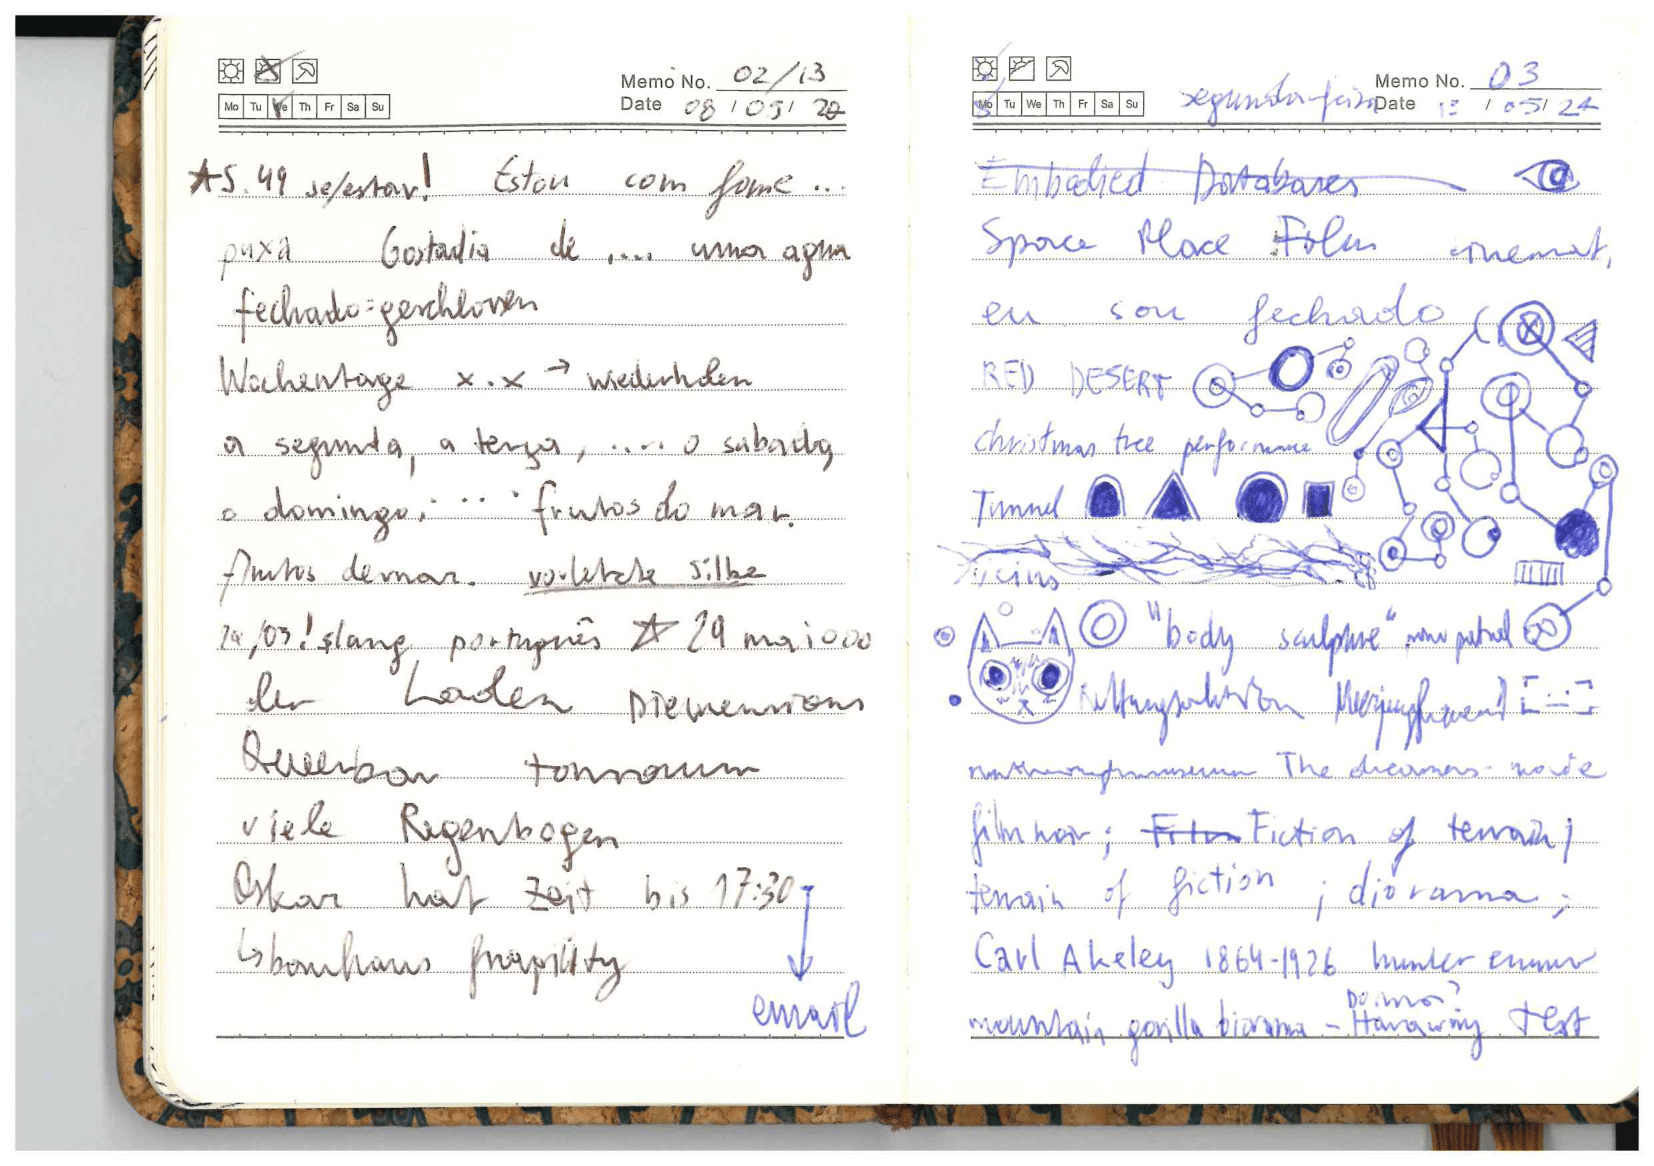 Memo No. 02/13
Mo Tu We Th Fr Sa Su
Date 08/05/
★S. 49 se/estar! Estou com fome ...
puxa Gostadia de .... uma agua
fechado=geschlossen
Wochentage x.x → wiederholen
a segunda, a terça, ..... o sábado,
o domingo; ... frutos do mar.
frutos do mar. vorletzte Silbe
! slang português ☆ 29 maiooo
der Laden Diemensions
viele Regenbogen
Oskar hat Zeit bis 17:30
↳bauhaus fragility
email
Memo No. 03
Mo Tu We Th Fr Sa Su
segunda-feira Date 13/05/24
Embodied Databases
Space Place Film cinemat.
eu sou fechado
RED DESERT
christmas tree performance
Tunnel
"body sculpture"
The dreamers
film noir; Film Fiction of terrain;
terrain of fiction ; diorama ;
Carl Akeley 1864-1926 hunter
Donna?
mountain gorilla diorama - Haraway Text